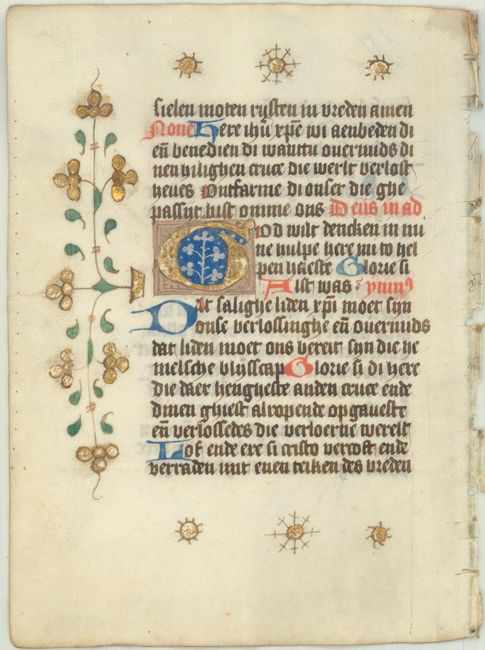 sielen moten rusten in vreden amen
None Here ihū xpē wi aenbeden di
eñ benedien di wantu overmids di
nen hilighen cruce die werlt verlost
heves Ontfarme di onser die ghe
passyt bist omme ons Deus in ad
God wilt dencken in mi
ne hulpe here mi to hel
pen haeste Glorie si
Alst was ymnꝰ
Dat salighe liden xpi moet syn
onse verlossinghe eñ overmids
dat liden moet ons bereit syn die he
melsche bliscap Glorie si di here
die daer hengheste anden cruce ende
dinen ghiest alropende op gaveste
eñ verlossedes die verloerne werelt
Lof ende ere si cristo vercoft ende
verraden mit even teiken des vreden